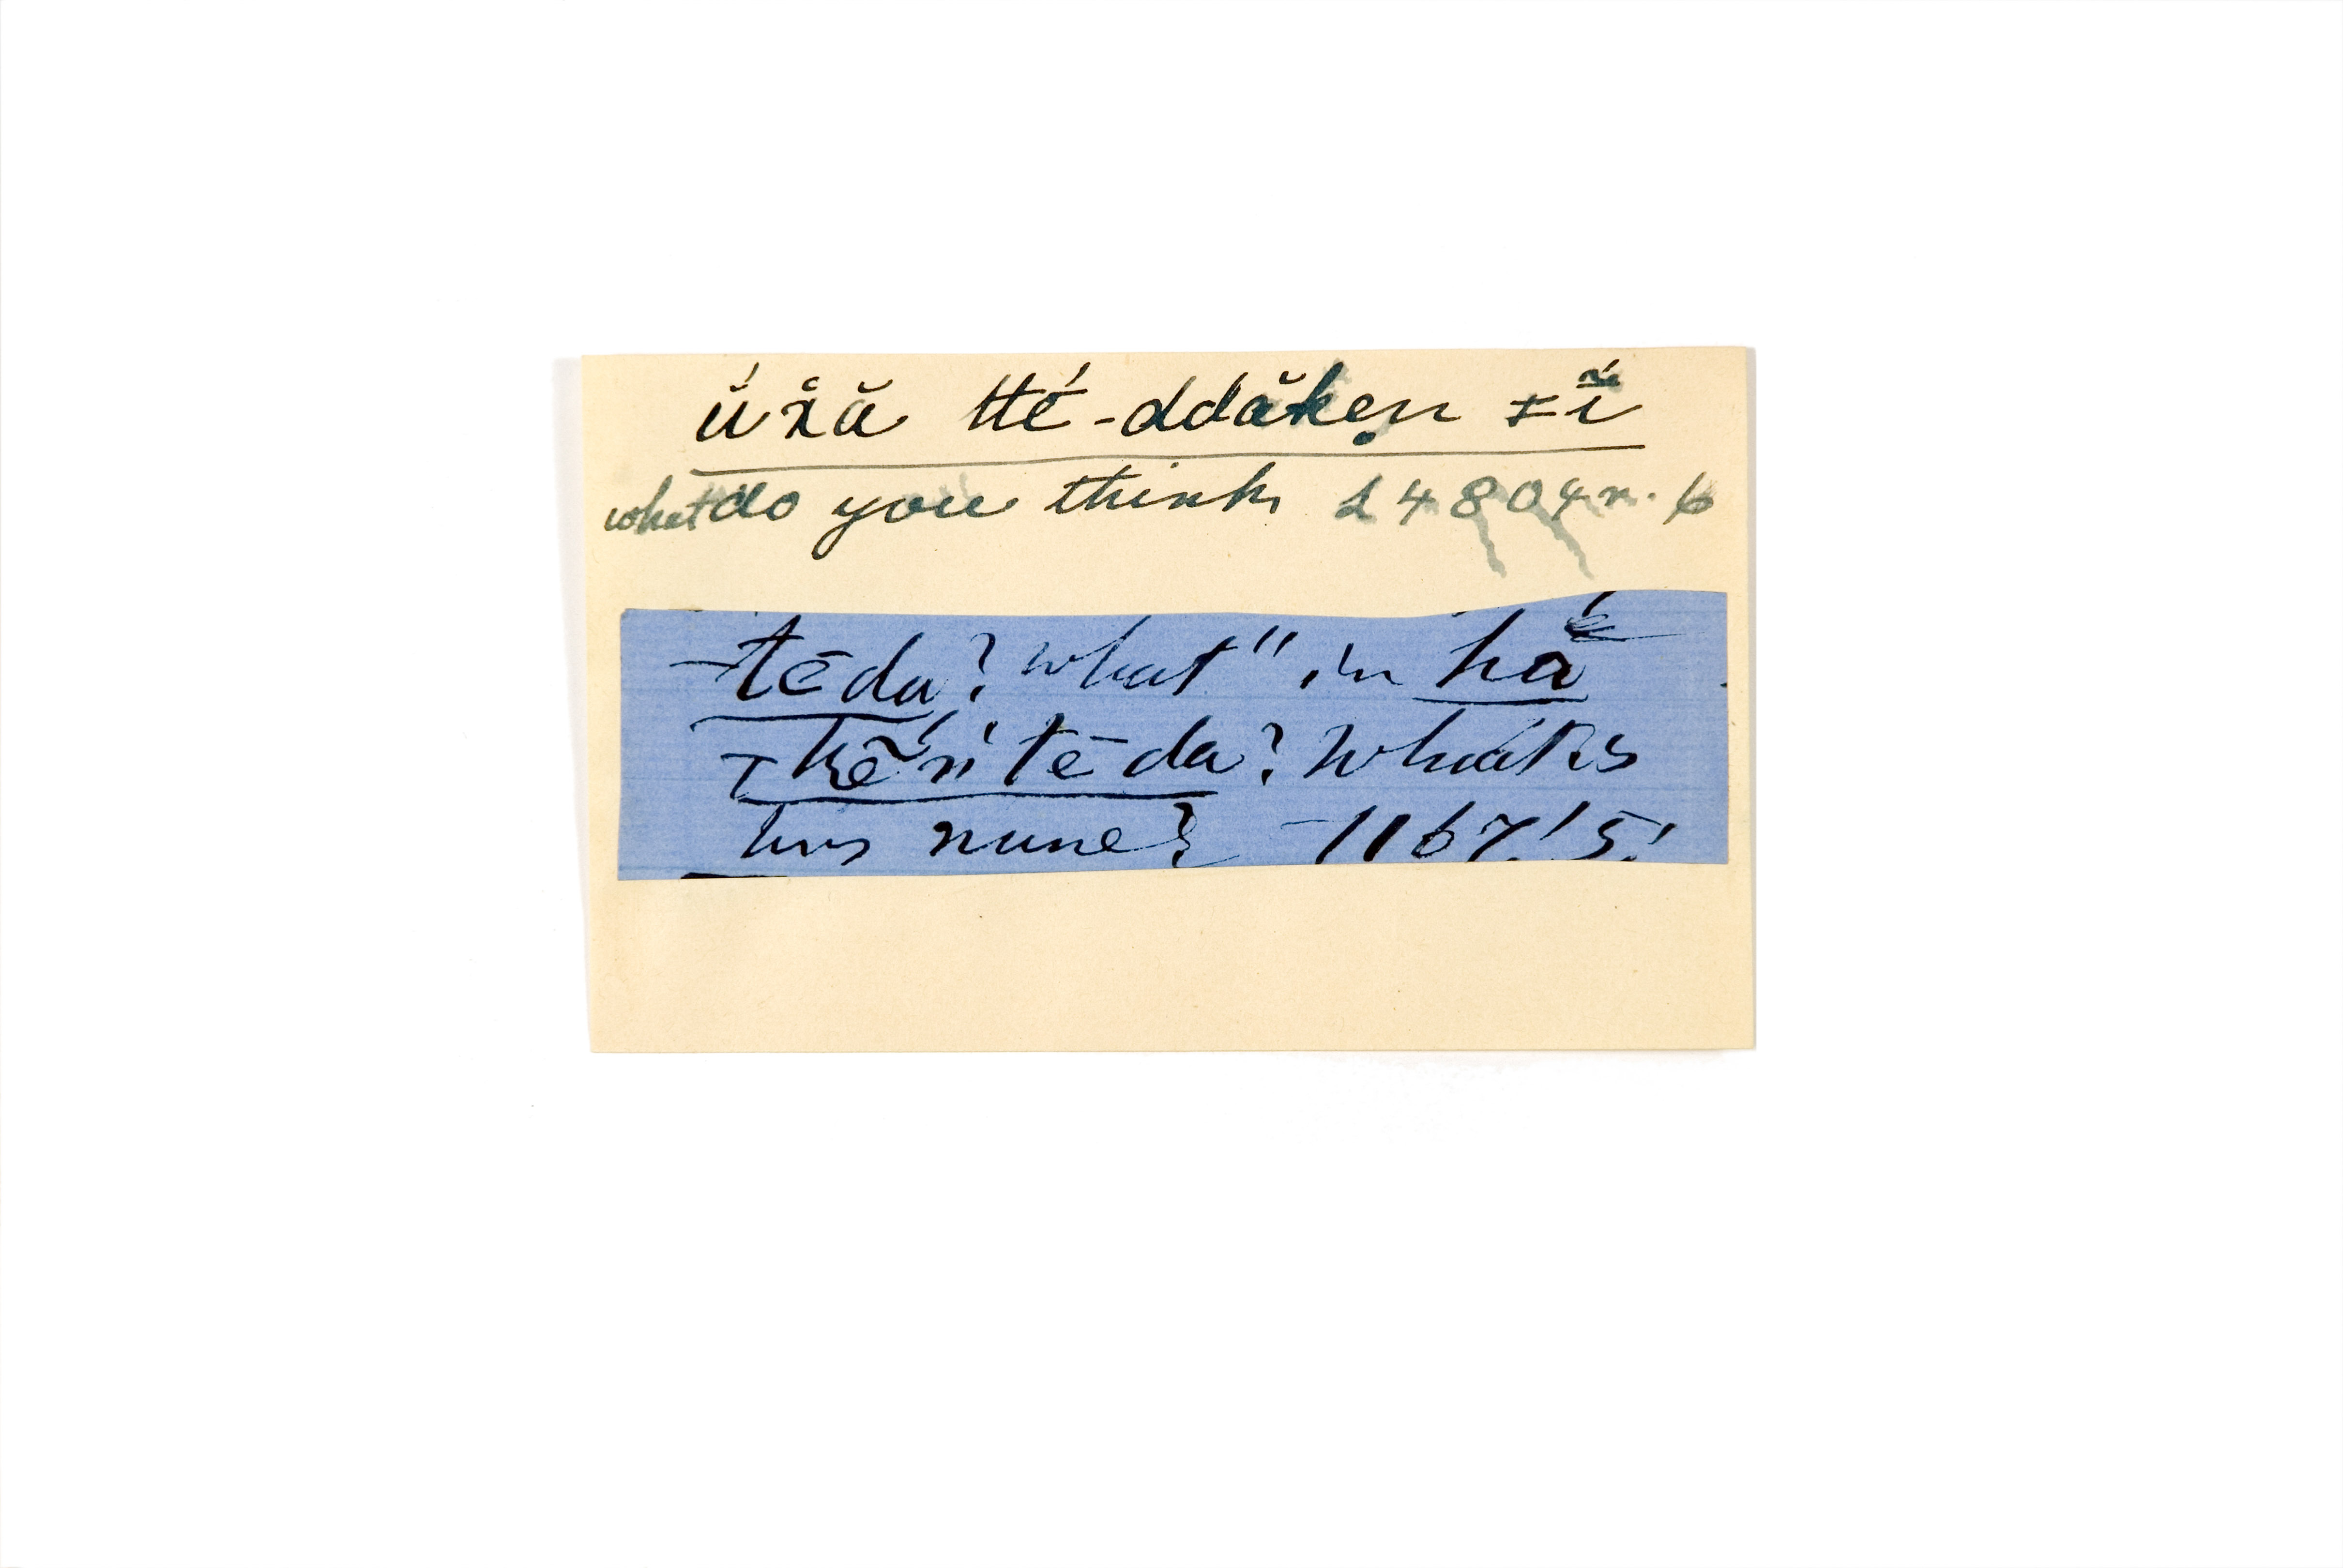 ú̆x̊ă tté-ddăkẹn xĭ
what do you think 24804n.6
tēda? what" in hă
kḗñ tēda? What is
his name? -1167.'5.'